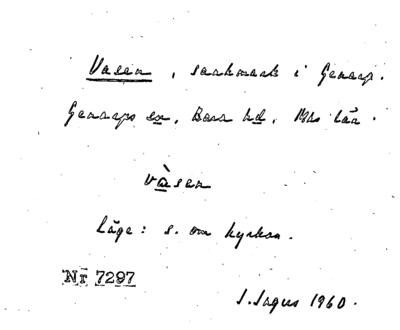 Vasen, sankmark i Genarp.
Genarps sn, Bara hd, Mlm län.
vàsen
Läge: s. om kyrkan.
Nr 7297
1960.